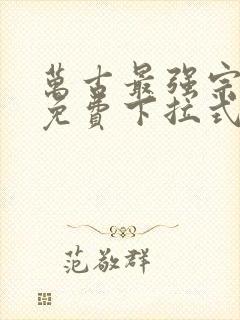 萬古最强宗
免費下拉式
范敬群